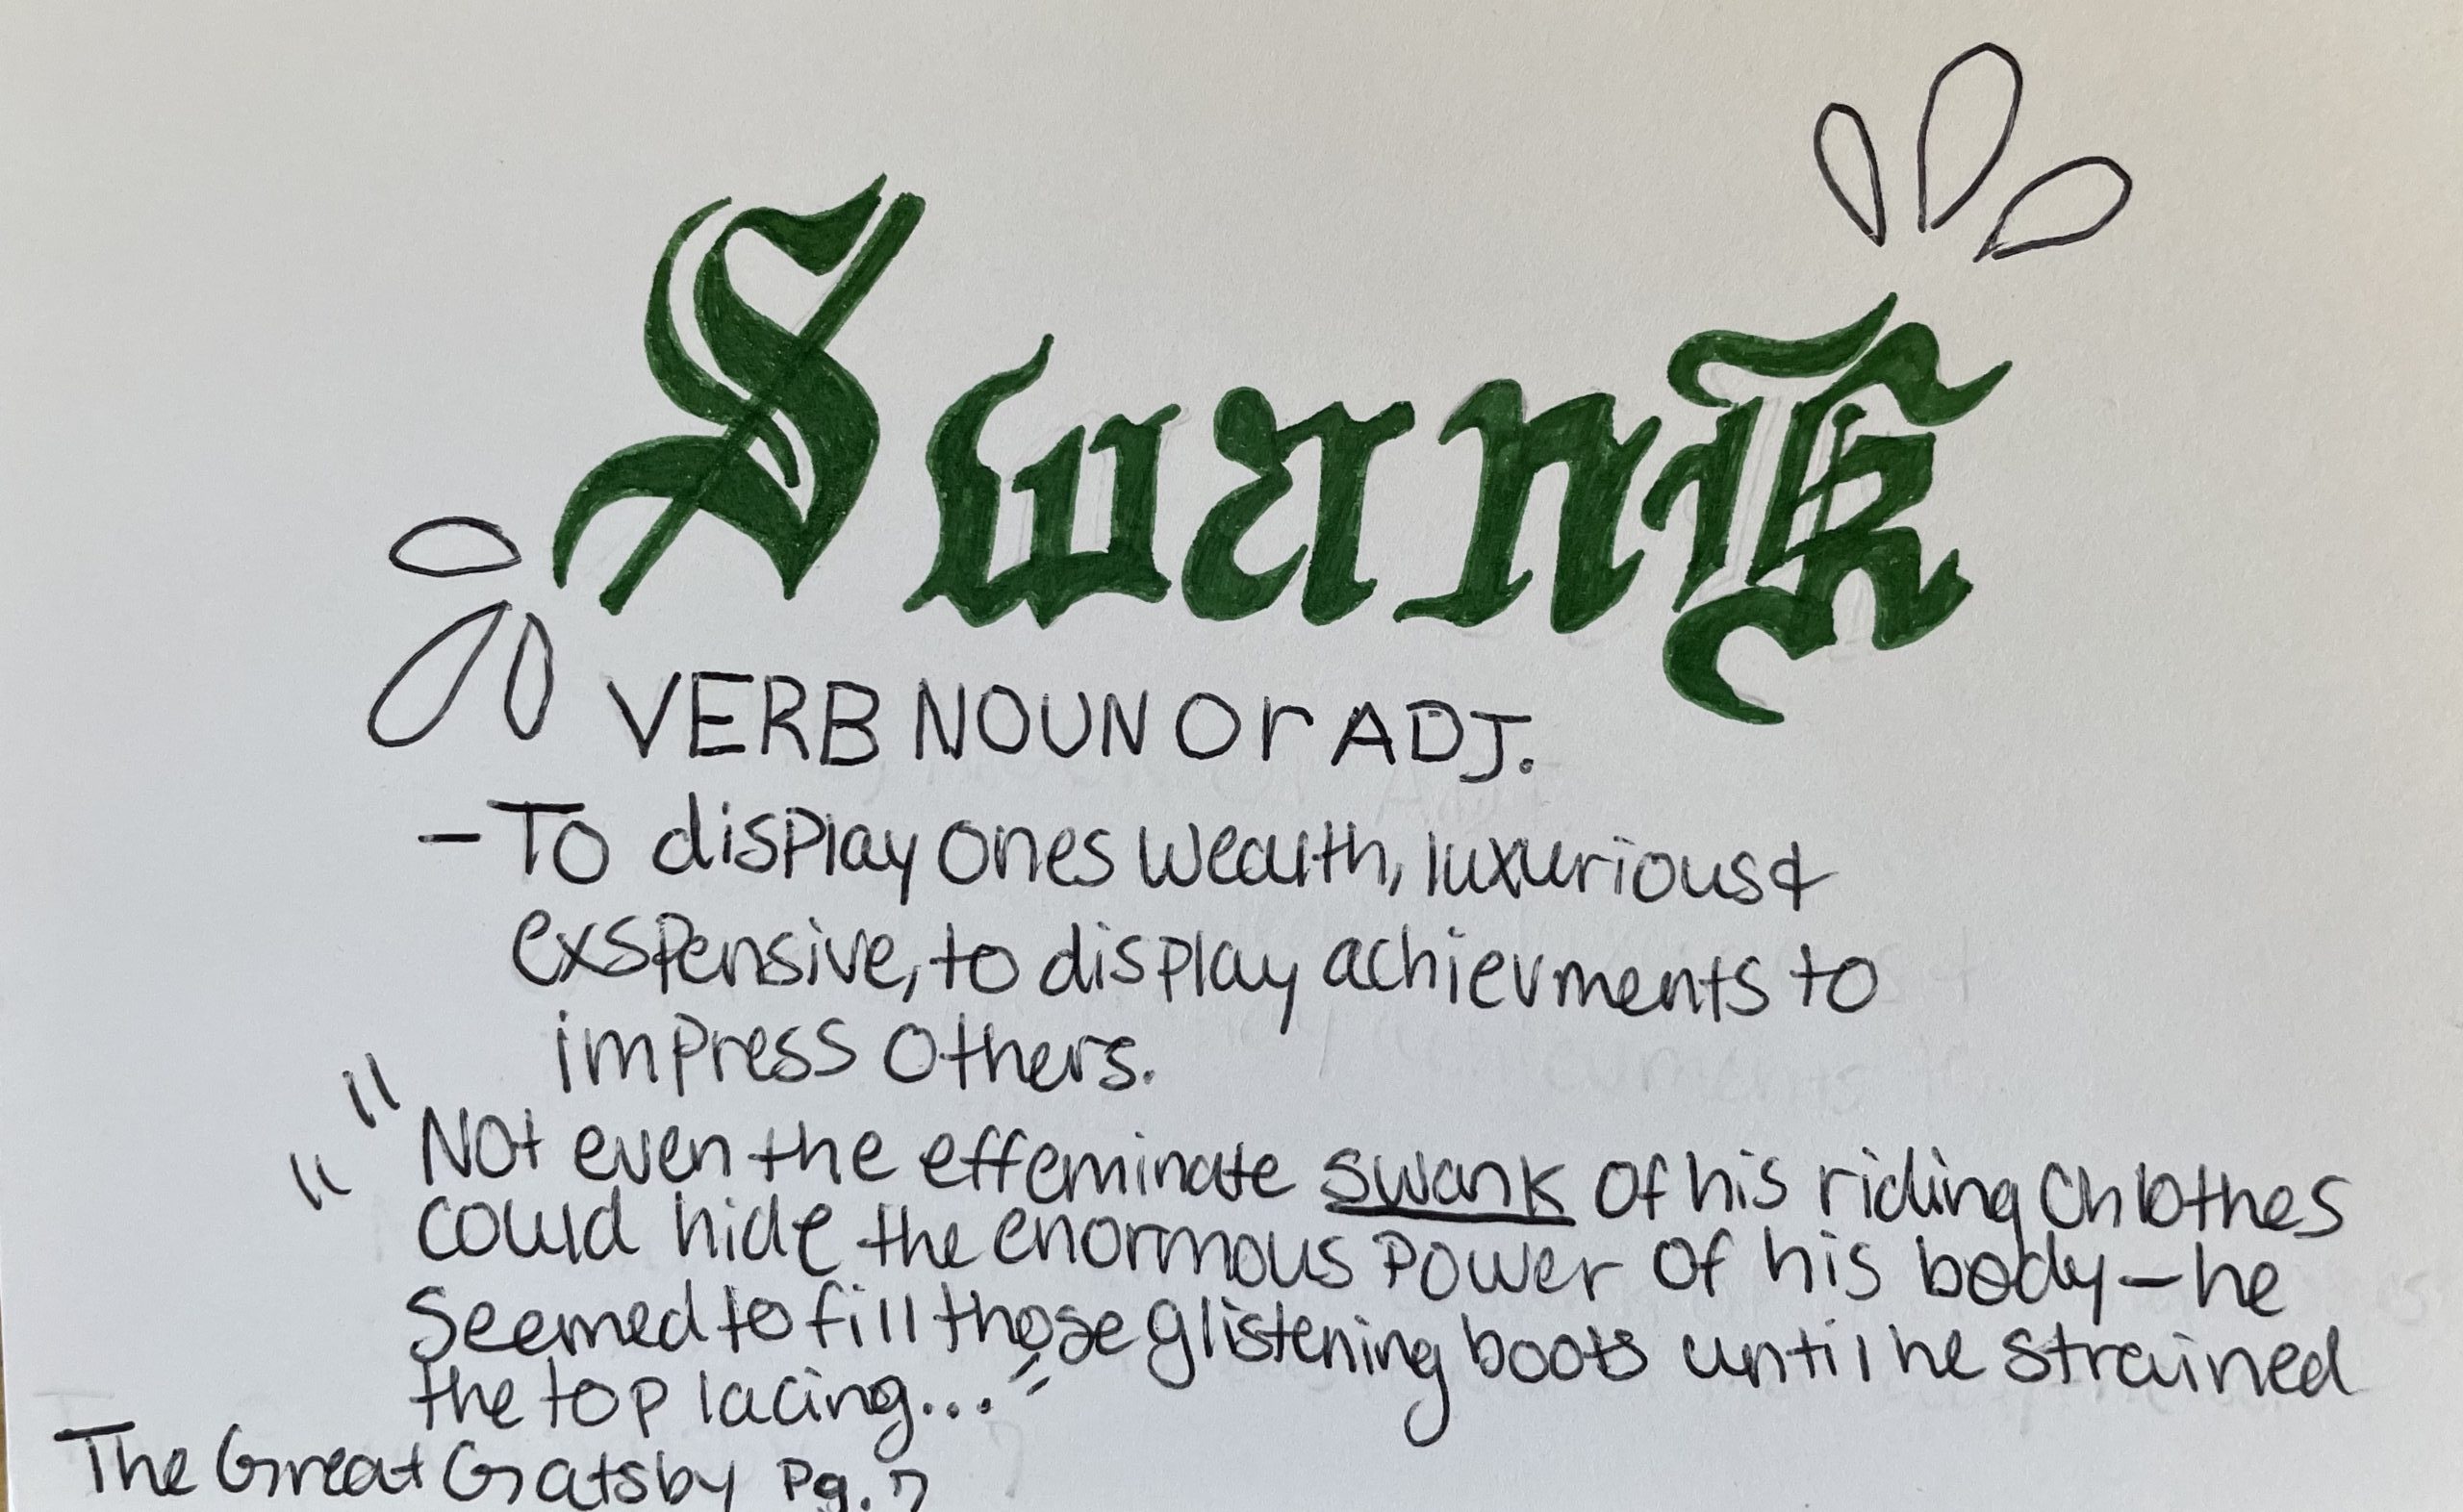 Swank
VERB NOUN Or ADJ.
- To display ones wealth, luxurious &
exspensive, to display achievments to
impress others.
"Not even the effeminate swank of his riding Chlothes
could hide the enormous power of his body - he
seemed to fill those glistening boots until he strained
the top lacing..."
The Great Gatsby Pg. 7